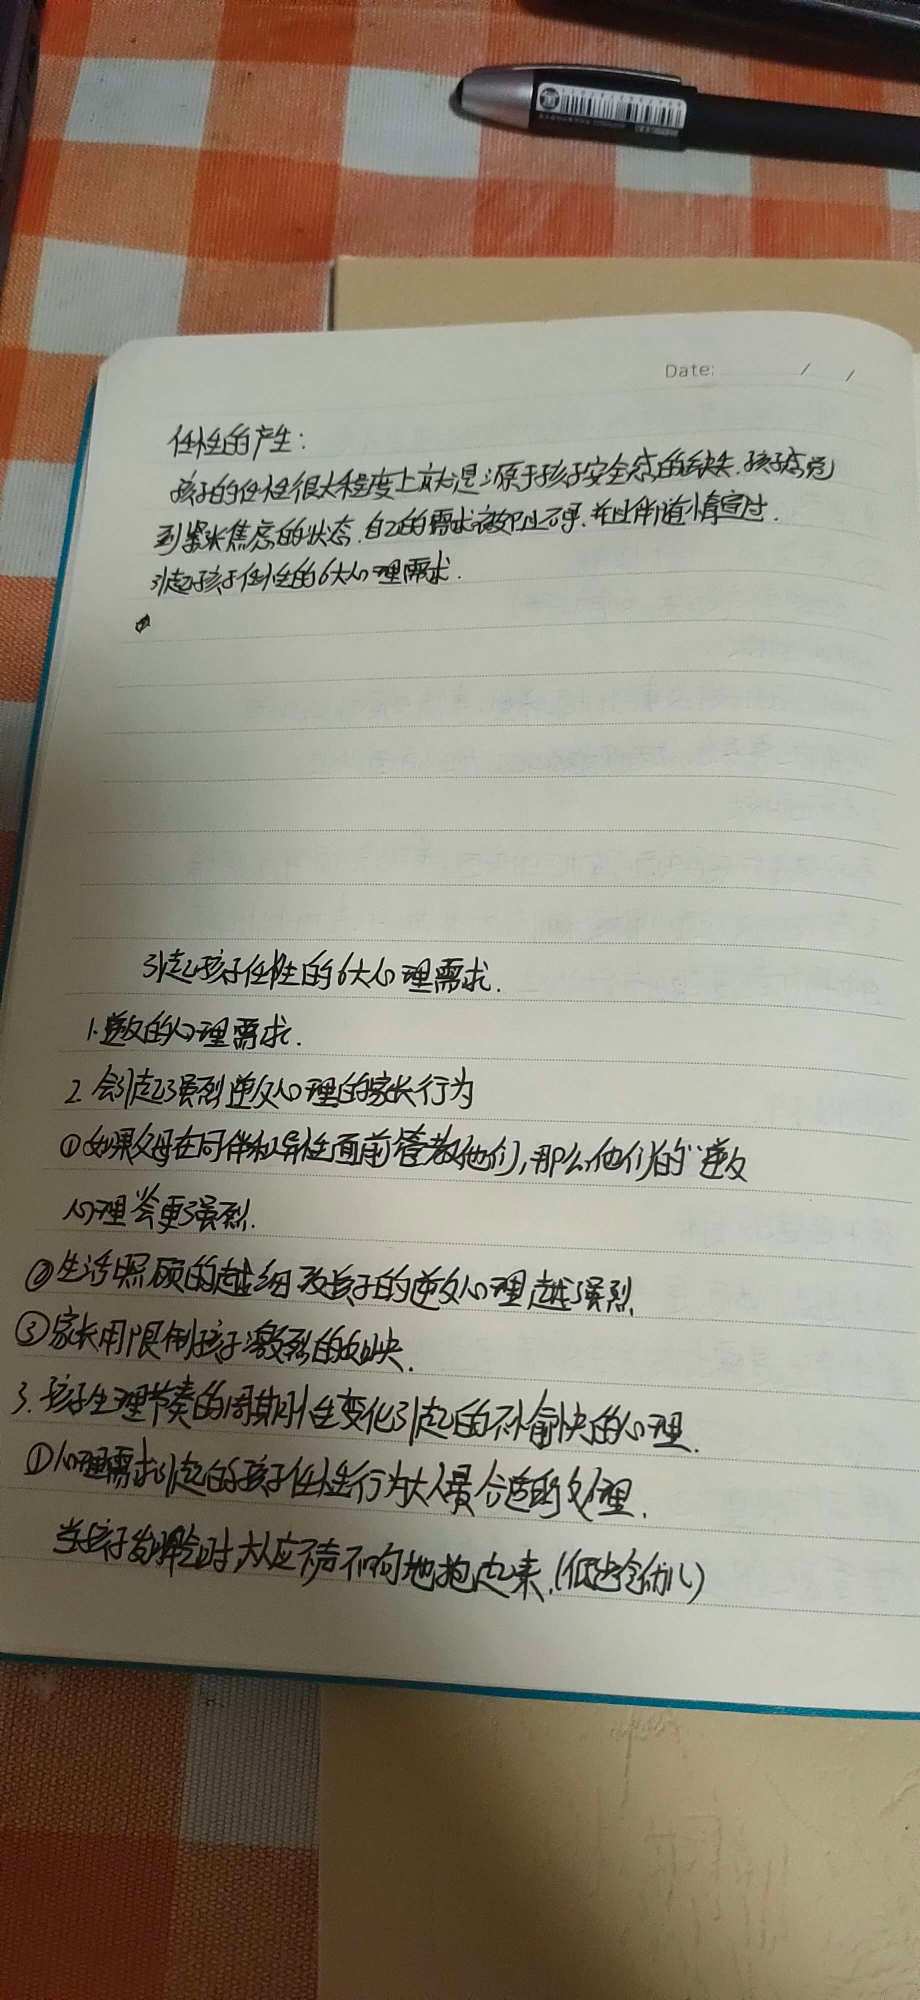 Date: / /
任性的产生：
孩子的任性很大程度上就是源于孩子安全感的缺失.孩子感觉
到紧张焦虑的状态.自己的需求被 .并且伴随情宣泄.
引起孩子任性的6大心理需求.
引起孩子任性的6大心理需求.
1.逆反的心理需求.
2.会引起强烈逆反心理的家长行为
①如果父母在同伴和异性面前管教他们,那么他们的逆反
心理会更强烈.
②生活照顾的越细致孩子的逆反心理越强烈.
③家长用限制孩子激烈的 .
3.孩子生理节奏的周期性变化引起的不愉快的心理.
①心理需求引起的孩子任性行为大人最合适的处理.
当孩子发脾气时大人应不声不响地抱起来.(低龄幼儿)